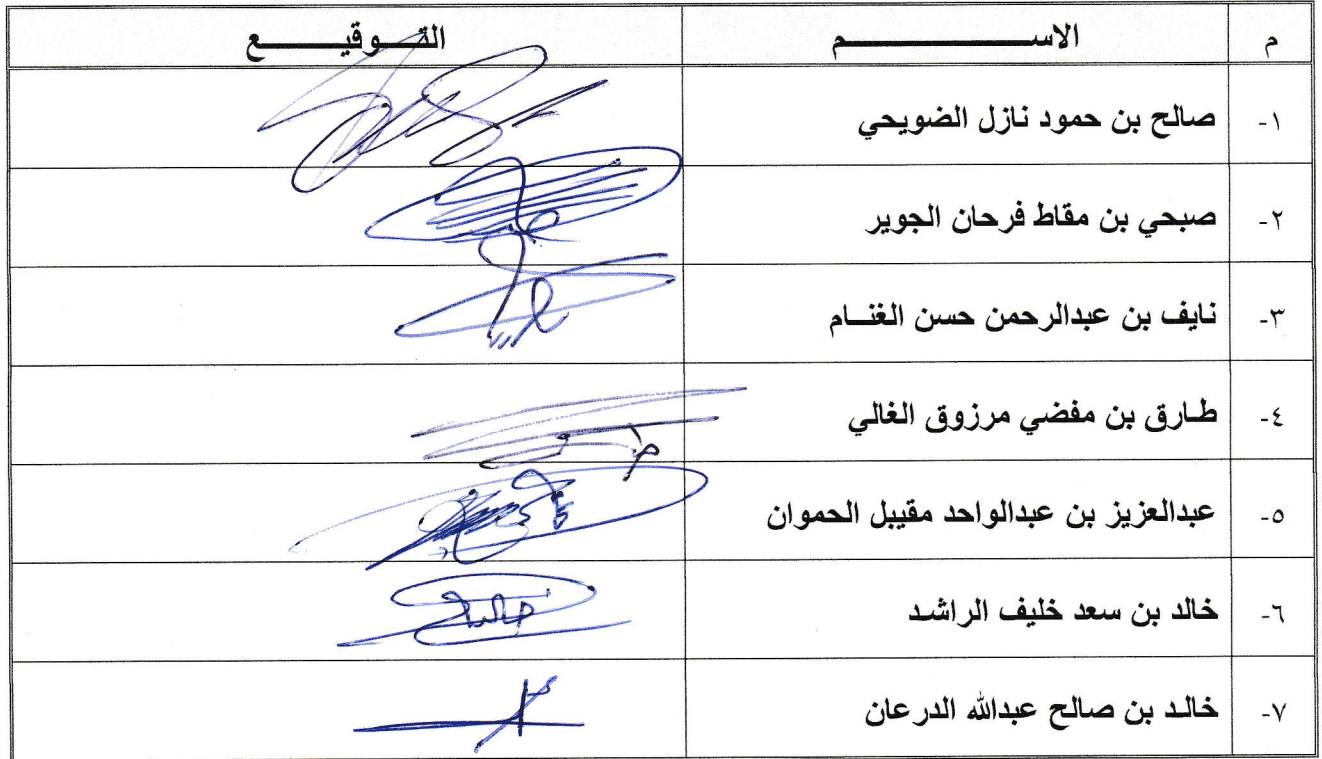 م الاســـــــــم التـــوقيـــــع
١- صالح بن حمود نازل الضويحي
٢- صبحي بن مقاط فرحان الجوير
٣- نايف بن عبدالرحمن حسن الغنــام
٤- طـارق بن مفضي مرزوق الغالي
٥- عبدالعزيز بن عبدالواحد مقيبل الحموان
٦- خالد بن سعد خليف الراشـد خالد
٧- خالـد بن صالح عبدالله الدرعان